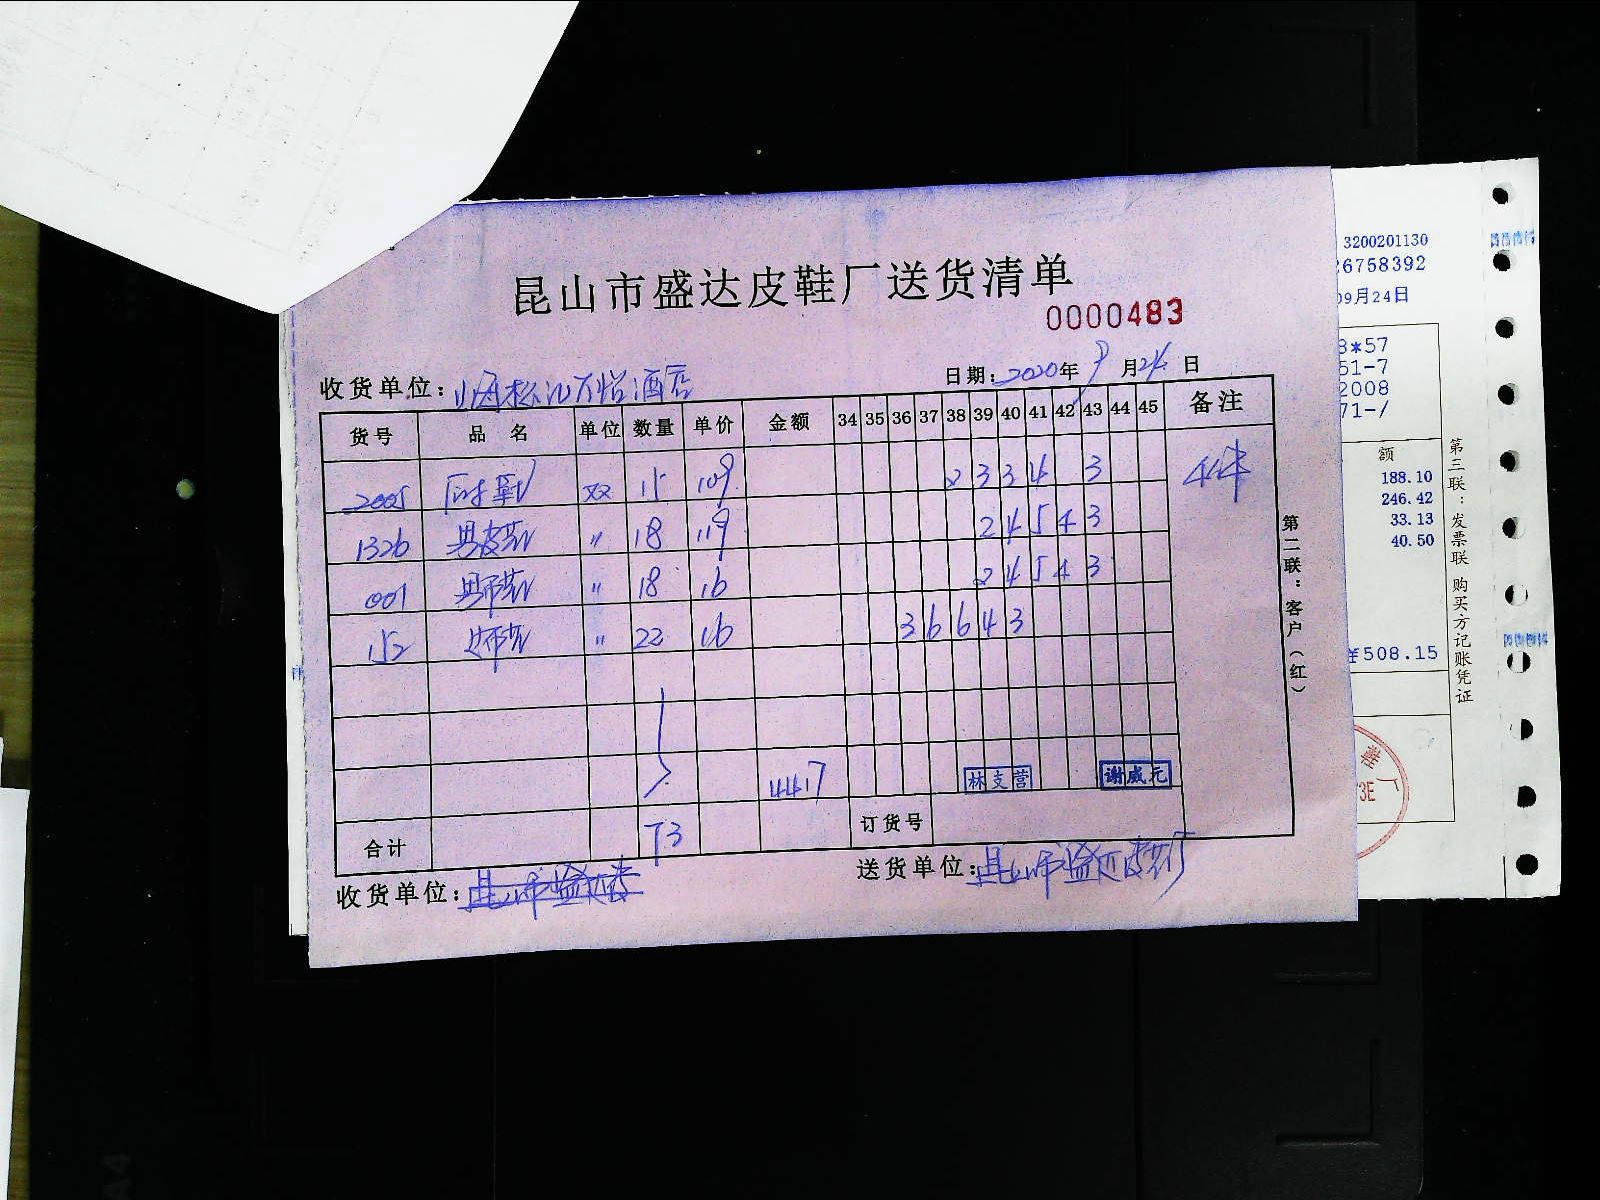 昆山市盛达皮鞋厂送货清单
0000483
收货单位: 酒店 日期: 2020年 9月24日
货号 品名 单位 数量 单价 金额 34 35 36 37 38 39 40 41 42 43 44 45 备注
2005 双 15 109 2 3 3 4 3 4件
1326 男皮鞋 〃 18 119 2 4 5 4 3
001 男布鞋 〃 18 16 2 4 5 4 3
152 女布鞋 〃 22 16 3 6 6 4 3
4417 林支营 谢威元
合计 73 订货号
收货单位: 昆山市盛达皮
送货单位: 昆山市盛达皮鞋厂
第二联:客户(红)
3200201130
26758392
09月24日
3*57
51-7
2008
71-/
额
188.10
246.42
33.13
40.50
¥508.15
第三联:发票联 购买方记账凭证
鞋厂
73E